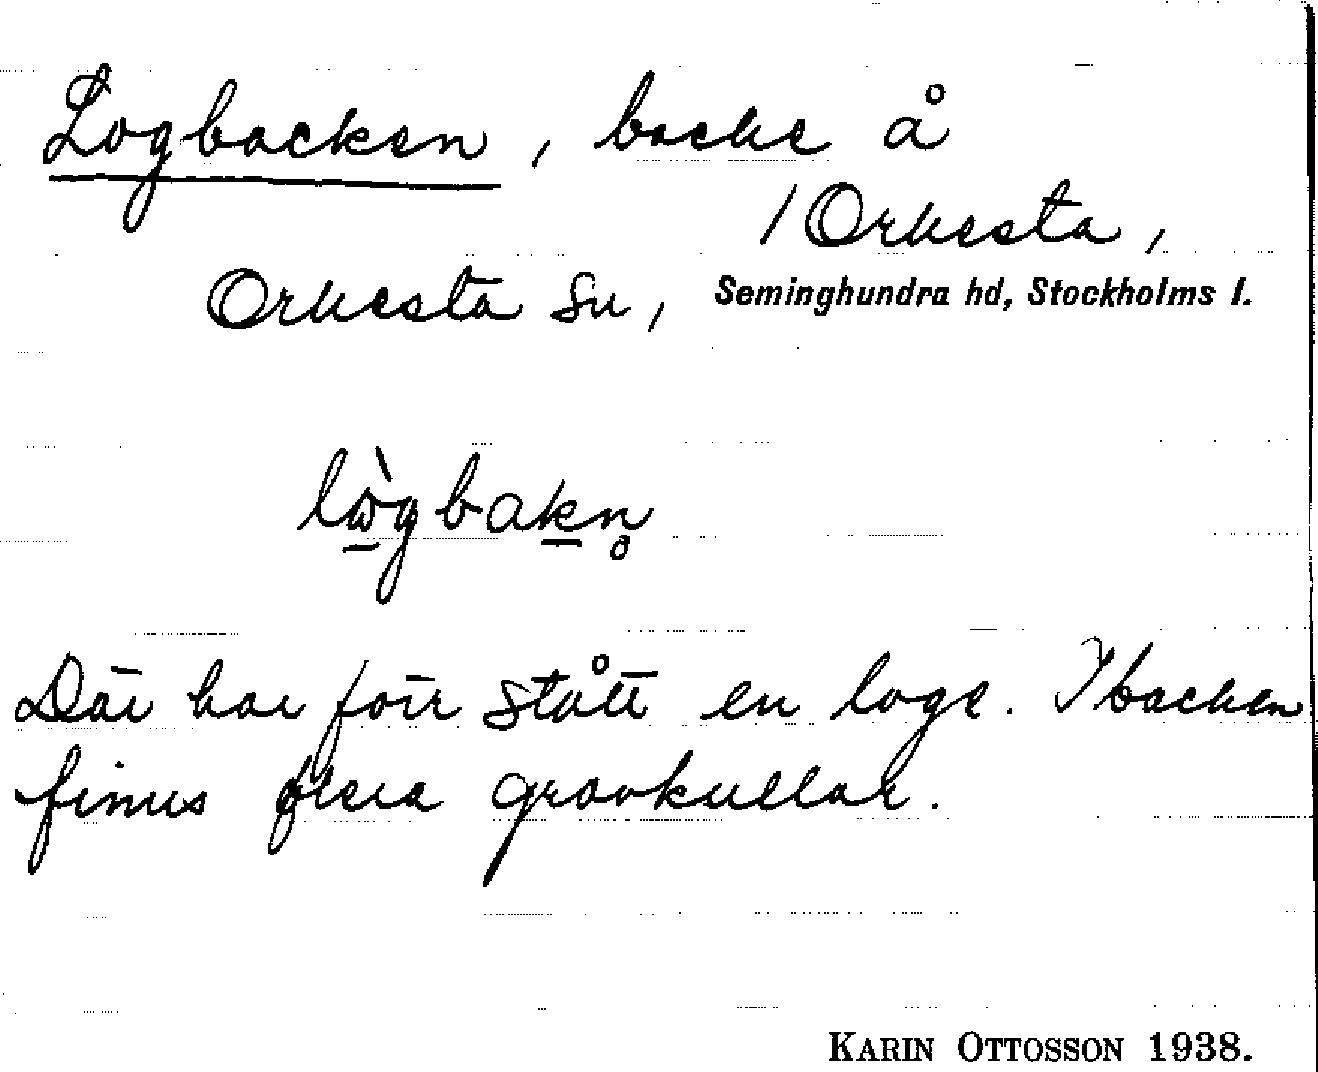 Logbacken, backe å
/Orkesta,
Orkesta sn, Seminghundra hd, Stockholms l.
lògbakn̥
Där har förr stått en loge. I backen
finns flera gravkullar.
KARIN OTTOSSON 1938.